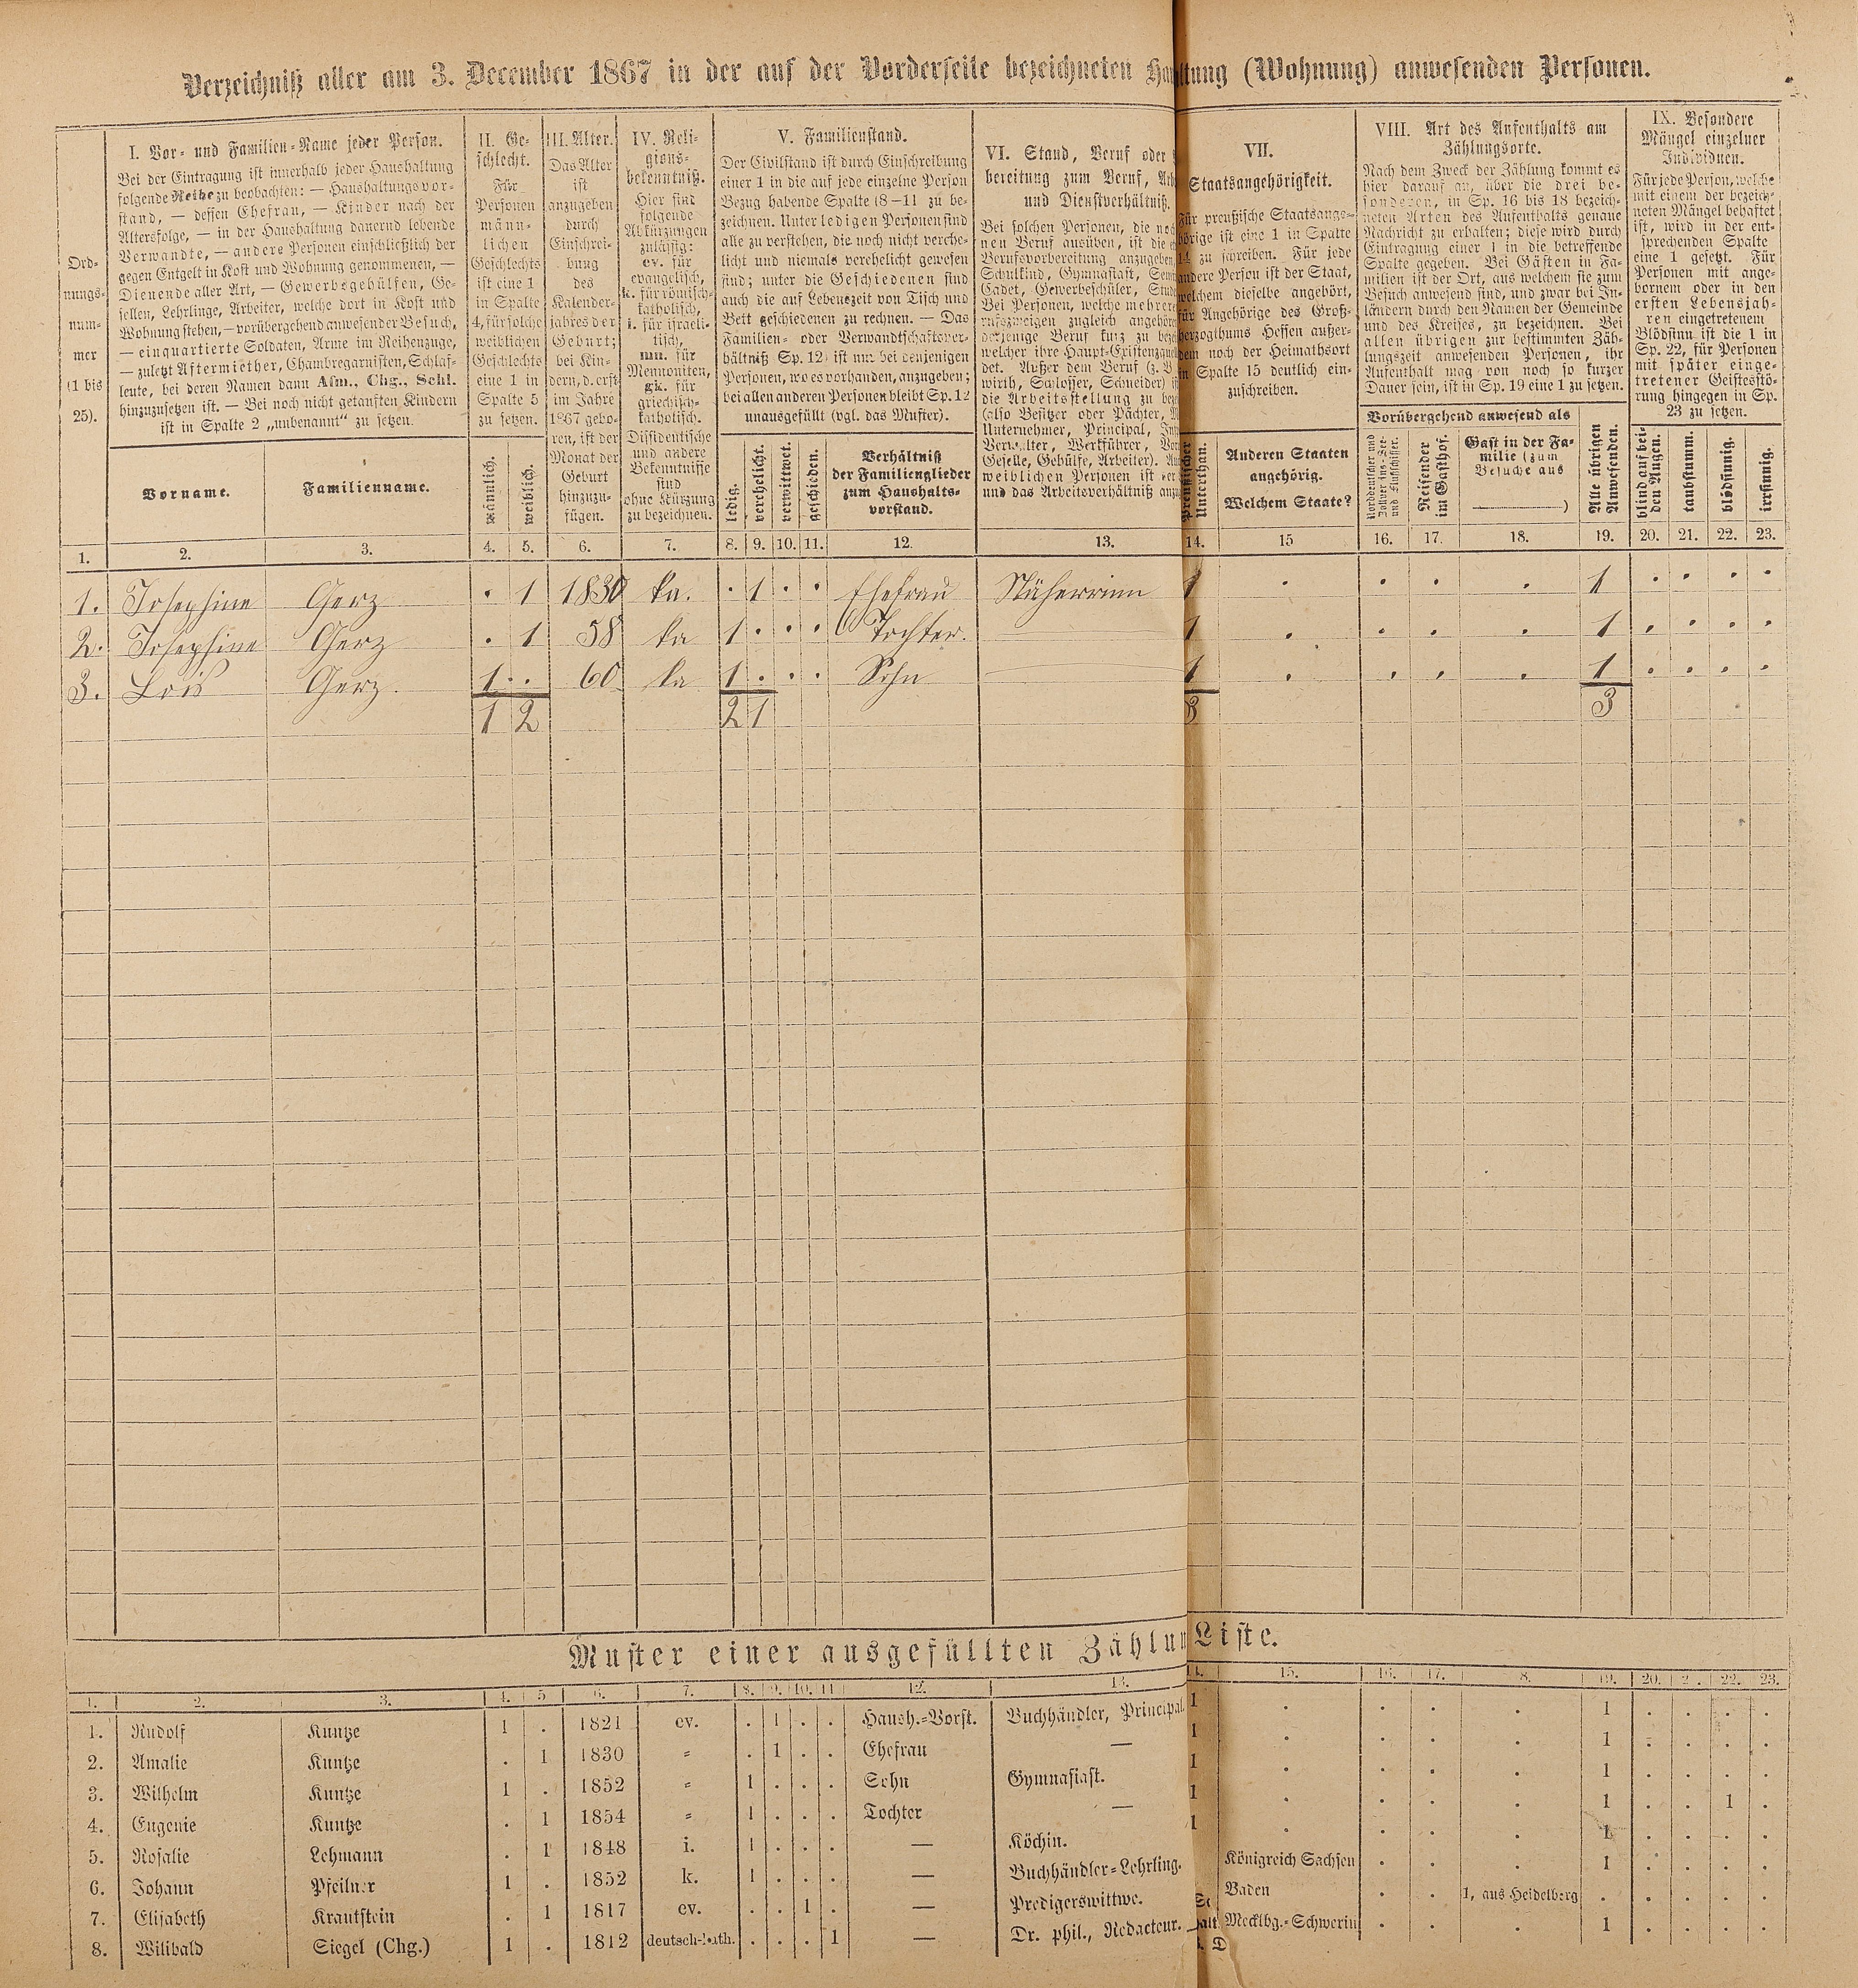 Verzeichniß aller am 3. December 1867 in der auf der Vorderseite bezeichneten Haushaltung (Wohnung) anwesenden Personen.
Ord-
nungs-
num-
mer
(1 bis
25).
I. Vor- und Familien-Name jeder Person.
Bei der Eintragung ist innerhalb jeder Haushaltung
folgende Reihe zu beobachten: — Haushaltungsvor-
stand, — dessen Ehefrau, — Kinder nach der
Altersfolge, — in der Haushaltung dauernd lebende
Verwandte, — andere Personen einschließlich der
gegen Entgelt in Kost und Wohnung genommenen, —
Dienende aller Art, — Gewerbsgehülfen, Ge-
sellen, Lehrlinge, Arbeiter, welche dort in Kost und
Wohnung stehen, — vorübergehend anwesender Besuch,
— einquartierte Soldaten, Arme im Reihenzuge,
— zuletzt Aftermiether, Chambregarnisten, Schlaf-
leute, bei deren Namen dann Afm., Chg., Schl.
hinzuzusetzen ist. — Bei noch nicht getauften Kindern
ist in Spalte 2 „unbenannt“ zu setzen.
Vorname.
Familienname.
II. Ge-
schlecht.
Für
Personen
männ-
lichen
Geschlechts
ist eine 1
in Spalte
4, für solche
weiblichen
Geschlechts
eine 1 in
Spalte 5
zu setzen.
männlich.
weiblich.
III. Alter.
Das Alter
ist
anzugeben
durch
Einschrei-
bung
des
Kalender-
jahres der
Geburt;
bei Kin-
dern, d. erst
im Jahre
1867 gebo-
ren, ist der
Monat der
Geburt
hinzuzu-
fügen.
IV. Reli-
gions-
bekenntniß.
Hier sind
folgende
Abkürzungen
zulässig:
ev. für
evangelisch,
k. für römisch-
katholisch,
i. für israeli-
tisch,
mn. für
Mennoniten,
gk. für
griechisch-
katholisch.
Dissidentische
und andere
Bekenntnisse
sind
ohne Kürzung
zu bezeichnen.
V. Familienstand.
Der Civilstand ist durch Einschreibung
einer 1 in die auf jede einzelne Person
Bezug habende Spalte (8–11 zu be-
zeichnen. Unter ledigen Personen sind
alle zu verstehen, die noch nicht verehe-
licht und niemals verehelicht gewesen
sind; unter die Geschiedenen sind
auch die auf Lebenszeit von Tisch und
Bett geschiedenen zu rechnen. — Das
Familien- oder Verwandtschaftsver-
hältniß Sp. 12) ist nur bei denjenigen
Personen, wo es vorhanden, anzugeben;
bei allen anderen Personen bleibt Sp. 12
unausgefüllt (vgl. das Muster).
ledig.
verehelicht.
verwittwet.
geschieden.
Verhältniß
der Familienglieder
zum Haushalts-
vorstand.
VI. Stand, Beruf oder
bereitung zum Beruf,
und Dienstverhältniß.
Bei solchen Personen, die
nen Beruf ausüben, ist die
Berufsvorbereitung anzugeben,
Schulkind, Gymnasiast,
Cadet, Gewerbeschüler,
Bei Personen, welche mehrere
rufszweigen zugleich
derjenige Beruf kurz zu
welcher ihre Haupt-
det. Außer dem Beruf (z. B.
wirth, Schlosser, Schneider)
die Arbeitsstellung zu
(also Besitzer oder Pächter,
Unternehmer, Principal,
Verwalter, Werkführer,
Geselle, Gehülfe, Arbeiter).
weiblichen Personen ist
und das Arbeitsverhältniß
VII.
Staatsangehörigkeit.
Für preußische Staatsange-
hörige ist eine 1 in Spalte
14 zu schreiben. Für jede
andere Person ist der Staat,
welchem dieselbe angehört,
für Angehörige des Groß-
herzogthums Hessen außer-
dem noch der Heimathsort
in Spalte 15 deutlich ein-
zuschreiben.
Preußischer
Unterthan.
Anderen Staaten
angehörig.
Welchem Staate?
VIII. Art des Aufenthalts am
Zählungsorte.
Nach dem Zweck der Zählung kommt es
hier darauf an, über die drei be-
sonderen, in Sp. 16 bis 18 bezeich-
neten Arten des Aufenthalts genaue
Nachricht zu erhalten; diese wird durch
Eintragung einer 1 in die betreffende
Spalte gegeben. Bei Gästen in Fa-
milien ist der Ort, aus welchem sie zum
Besuch anwesend sind, und zwar bei In-
ländern durch den Namen der Gemeinde
und des Kreises, zu bezeichnen. Bei
allen übrigen zur bestimmten Zäh-
lungszeit anwesenden Personen, ihr
Aufenthalt mag von noch so kurzer
Dauer sein, ist in Sp. 19 eine 1 zu setzen.
Vorübergehend anwesend als
Norddeutscher und
Zollver.ins-See-
und Flußschiffer.
Reisender
im Gasthof.
Gast in der Fa-
milie (zum
Besuche aus
)
Alle übrigen
Anwesenden.
IX. Besondere
Mängel einzelner
Individuen.
Für jede Person, welche
mit einem der bezeich-
neten Mängel behaftet
ist, wird in der ent-
sprechenden Spalte
eine 1 gesetzt. Für
Personen mit ange-
bornem oder in den
ersten Lebensjah-
ren eingetretenem
Blödsinn ist die 1 in
Sp. 22, für Personen
mit später einge-
tretener Geistesstö-
rung hingegen in Sp.
23 zu setzen.
blind auf bei-
den Augen.
taubstumm.
blödsinnig.
irrsinnig.
1. 2. 3. 4. 5. 6. 7. 8. 9. 10. 11. 12. 13. 14. 15 16. 17. 18. 19. 20. 21. 22. 23.
1. Josephine Gerz . 1 1830 ka. . 1 . . Ehefrau Näherrinn 1 . . . . 1 . . . .
2. Josephine Gerz . 1 58 ka 1 . . . Tochter. — 1 . . . . 1 . . . .
3. Lois Gerz. 1 . . 60 ka 1 . . . Sohn — 1 . . . . 1 . . . .
1 2 2 1 3 3
Muster einer ausgefüllten Zählungs-Liste.
1. 2. 3. 4. 5. 6. 7. 8. 9. 10. 11. 12. 13. 14. 15. 16. 17. 8. 19. 20. 2. 22. 23.
1. Rudolf Kuntze 1 . 1821 ev. . 1 . . Haush.-Vorst. Buchhändler, Principal. 1 . . . . 1 . . . .
2. Amalie Kuntze . 1 1830 " . 1 . . Ehefrau — 1 . . . . 1 . . . .
3. Wilhelm Kuntze 1 . 1852 " 1 . . . Sohn Gymnasiast. 1 . . . . 1 . . . .
4. Eugenie Kuntze . 1 1854 " 1 . . . Tochter — 1 . . . . 1 . . 1 .
5. Rosalie Lehmann . 1 1848 i. 1 . . . — Köchin. 1 . . . . 1 . . . .
6. Johann Pfeilner 1 . 1852 k. 1 . . . — Buchhändler-Lehrling. Königreich Sachsen . . . 1 . . . .
7. Elisabeth Krautstein . 1 1817 ev. . . 1 . — Predigerswittwe. Baden . . 1, aus Heidelberg . . . . .
8. Wilibald Siegel (Chg.) 1 . 1812 deutsch-kath. . . . 1 — Dr. phil., Redacteur. Mecklbg.-Schwerin . . . 1 . . . .